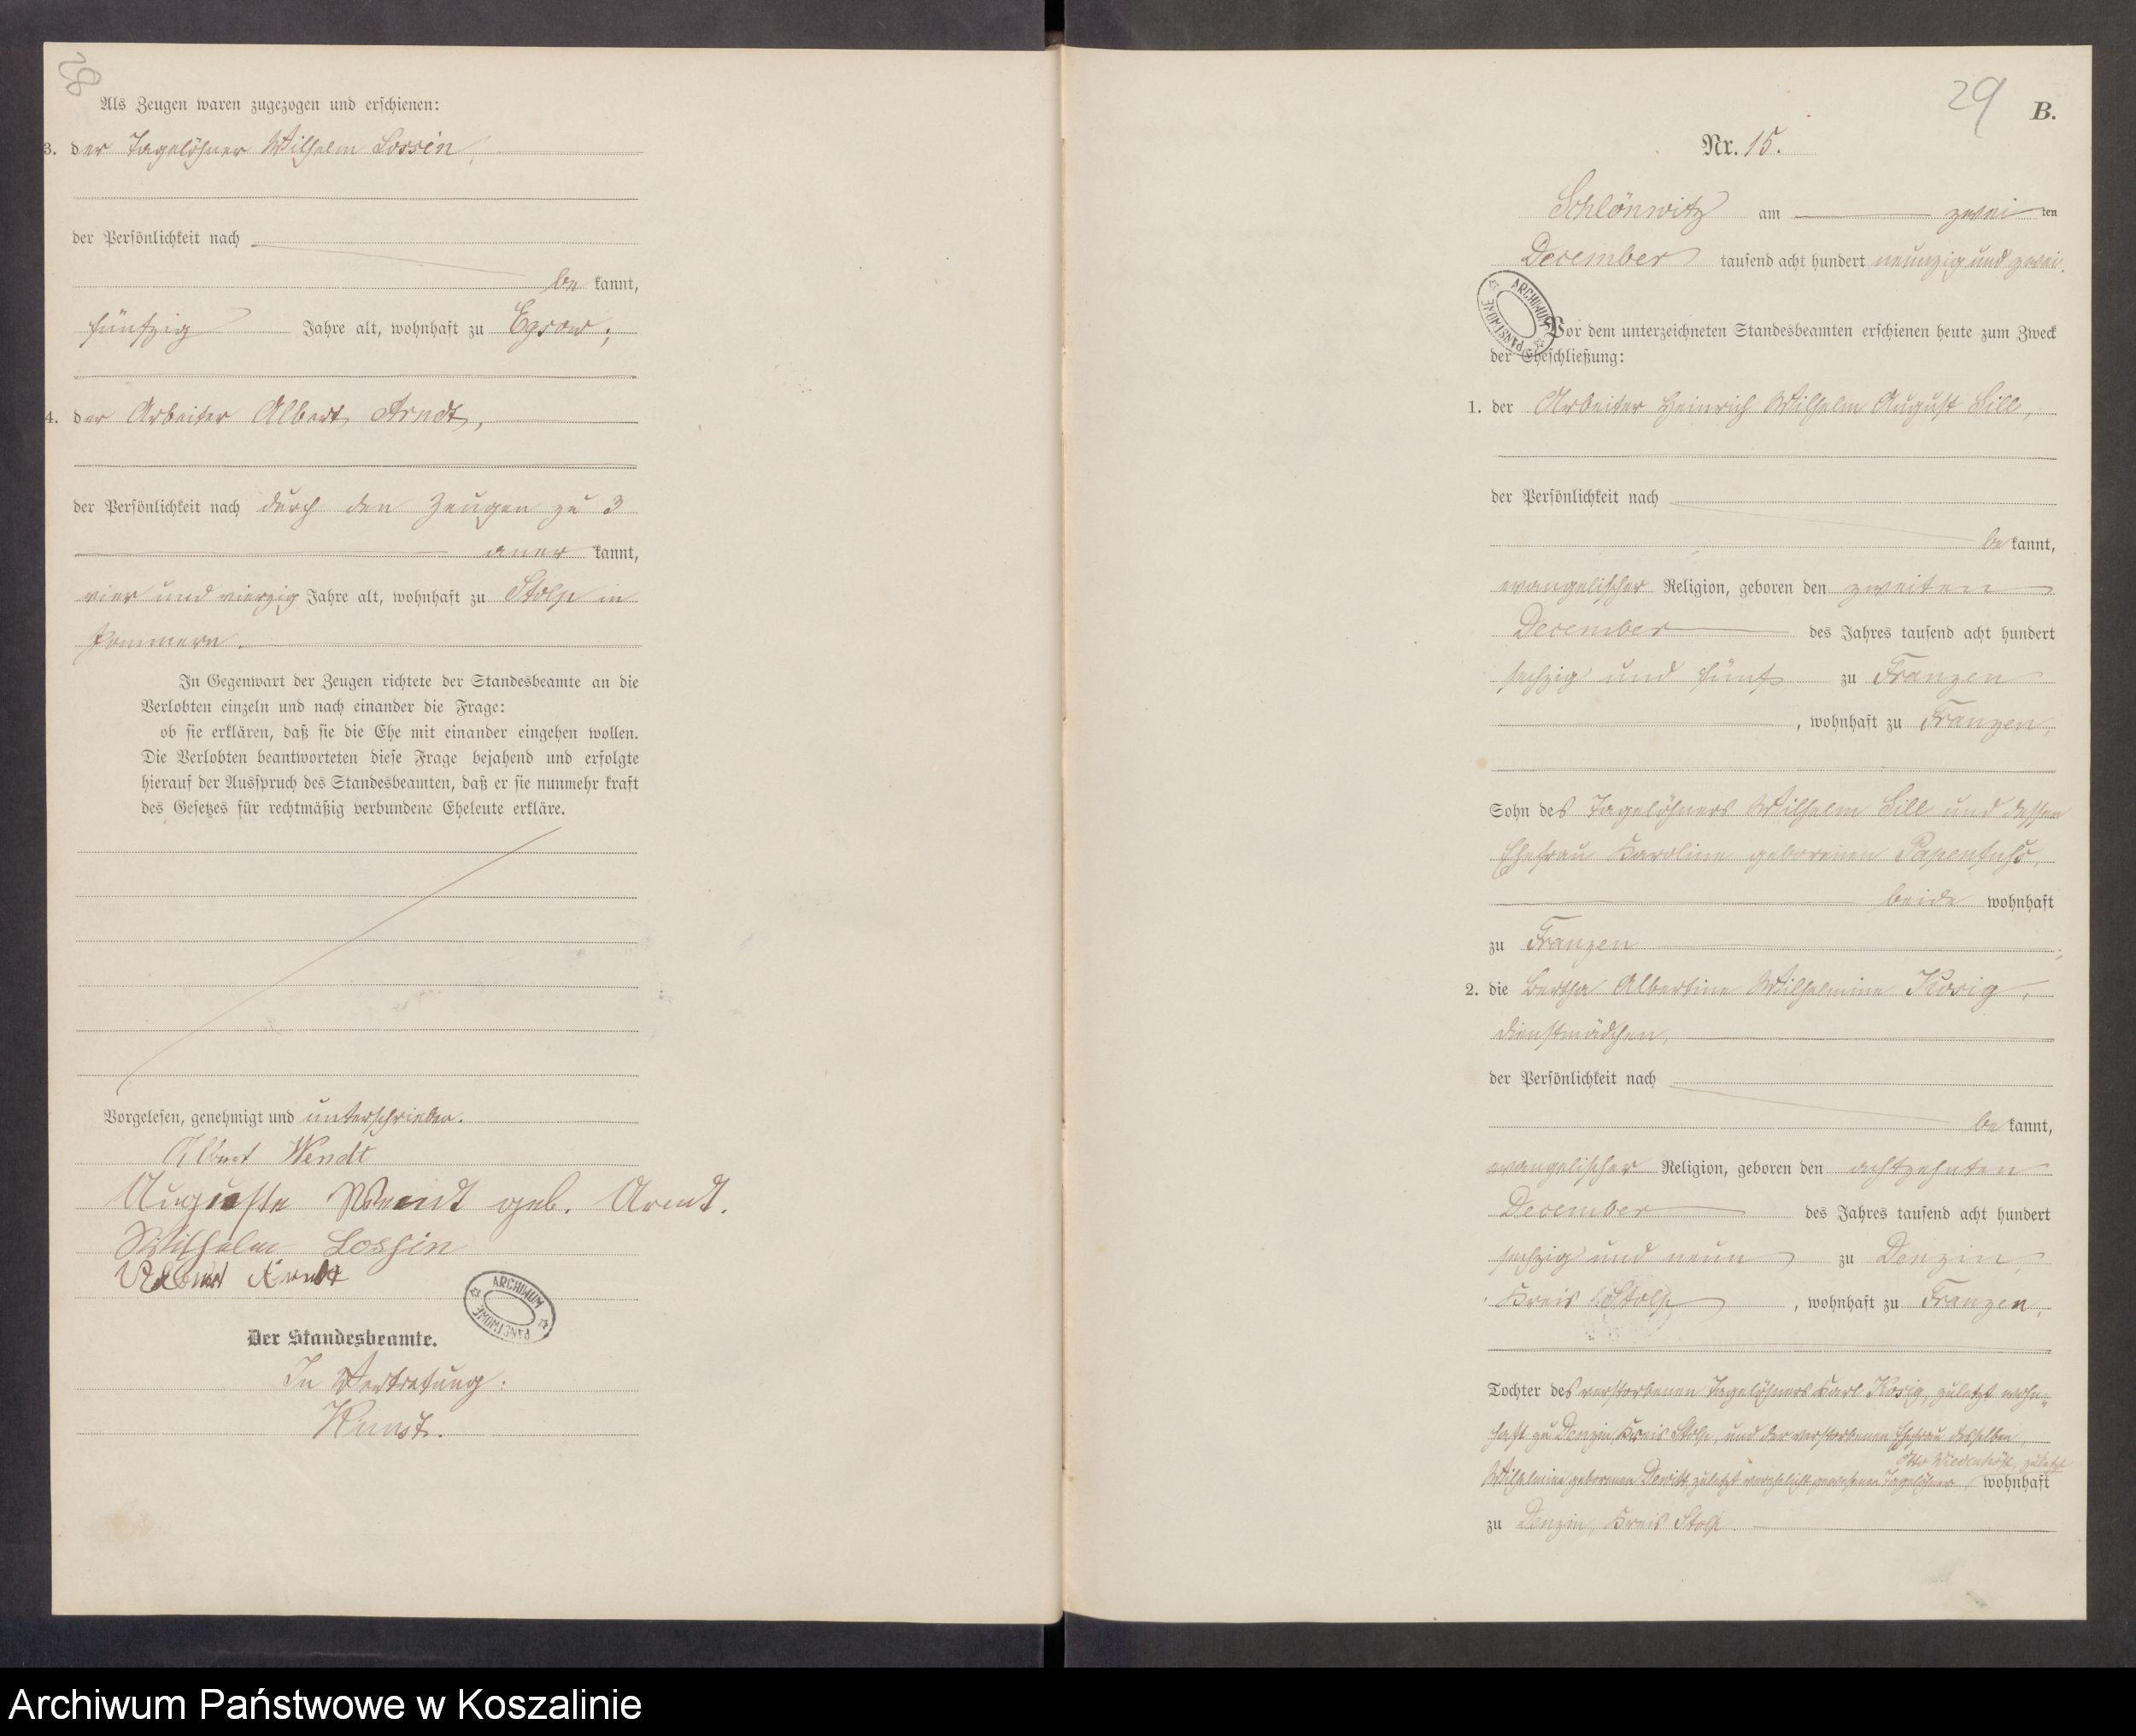 28
Als Zeugen waren zugezogen und erschienen:
3. der Tagelöhner Wilhelm Lossin,
der Persönlichkeit nach
be kannt,
fünfzig Jahre alt, wohnhaft zu Egsow;
4. der Arbeiter Albert Arndt,
der Persönlichkeit nach durch den Zeugen zu 3
aner kannt,
vier und vierzig Jahre alt, wohnhaft zu Stolp in
Pommern.
In Gegenwart der Zeugen richtete der Standesbeamte an die
Verlobten einzeln und nach einander die Frage:
ob sie erklären, daß sie die Ehe mit einander eingehen wollen.
Die Verlobten beantworteten diese Frage bejahend und erfolgte
hierauf der Ausspruch des Standesbeamten, daß er sie nunmehr kraft
des Gesetzes für rechtmäßig verbundene Eheleute erkläre.
Vorgelesen, genehmigt und unterschrieben.
Albert Wendt
Auguste Wendt geb. Arndt.
Wilhelm Lossin
Albert Arndt
ARCHIWUM PAŃSTWOWE
Der Standesbeamte.
In Vertretung:
29
B.
Nr. 15.
Schlönwitz am zwei ten
December tausend acht hundert neunzig und zwei.
ARCHIWUM PAŃSTWOWE
Vor dem unterzeichneten Standesbeamten erschienen heute zum Zweck
der Eheschließung:
1. der Arbeiter Heinrich Wilhelm August Sill,
der Persönlichkeit nach
be kannt,
evangelischer Religion, geboren den zweiten
December des Jahres tausend acht hundert
sechzig und fünf zu Franzen
, wohnhaft zu Franzen,
Sohn des Tagelöhners Wilhelm Sill und dessen
Ehefrau Karoline geborenen Papenfuhs,
beide wohnhaft
zu Franzen;
2. die Bertha Albertine Wilhelmine Kosig,
Dienstmädchen,
der Persönlichkeit nach
be kannt,
evangelischer Religion, geboren den achtzehnten
December des Jahres tausend acht hundert
sechzig und neun zu Denzin,
Kreis Stolp, wohnhaft zu Franzen,
Tochter des verstorbenen Tagelöhners Karl Kosig, zuletzt wohn-
haft zu Denzin, Kreis Stolp, und der verstorbenen Ehefrau desselben,
Otto zuletzt
Wilhelmine geborenen zuletzt verehelicht gewesenen Tagelöhner wohnhaft
zu Denzin, Kreis Stolp.
Archiwum Państwowe w Koszalinie